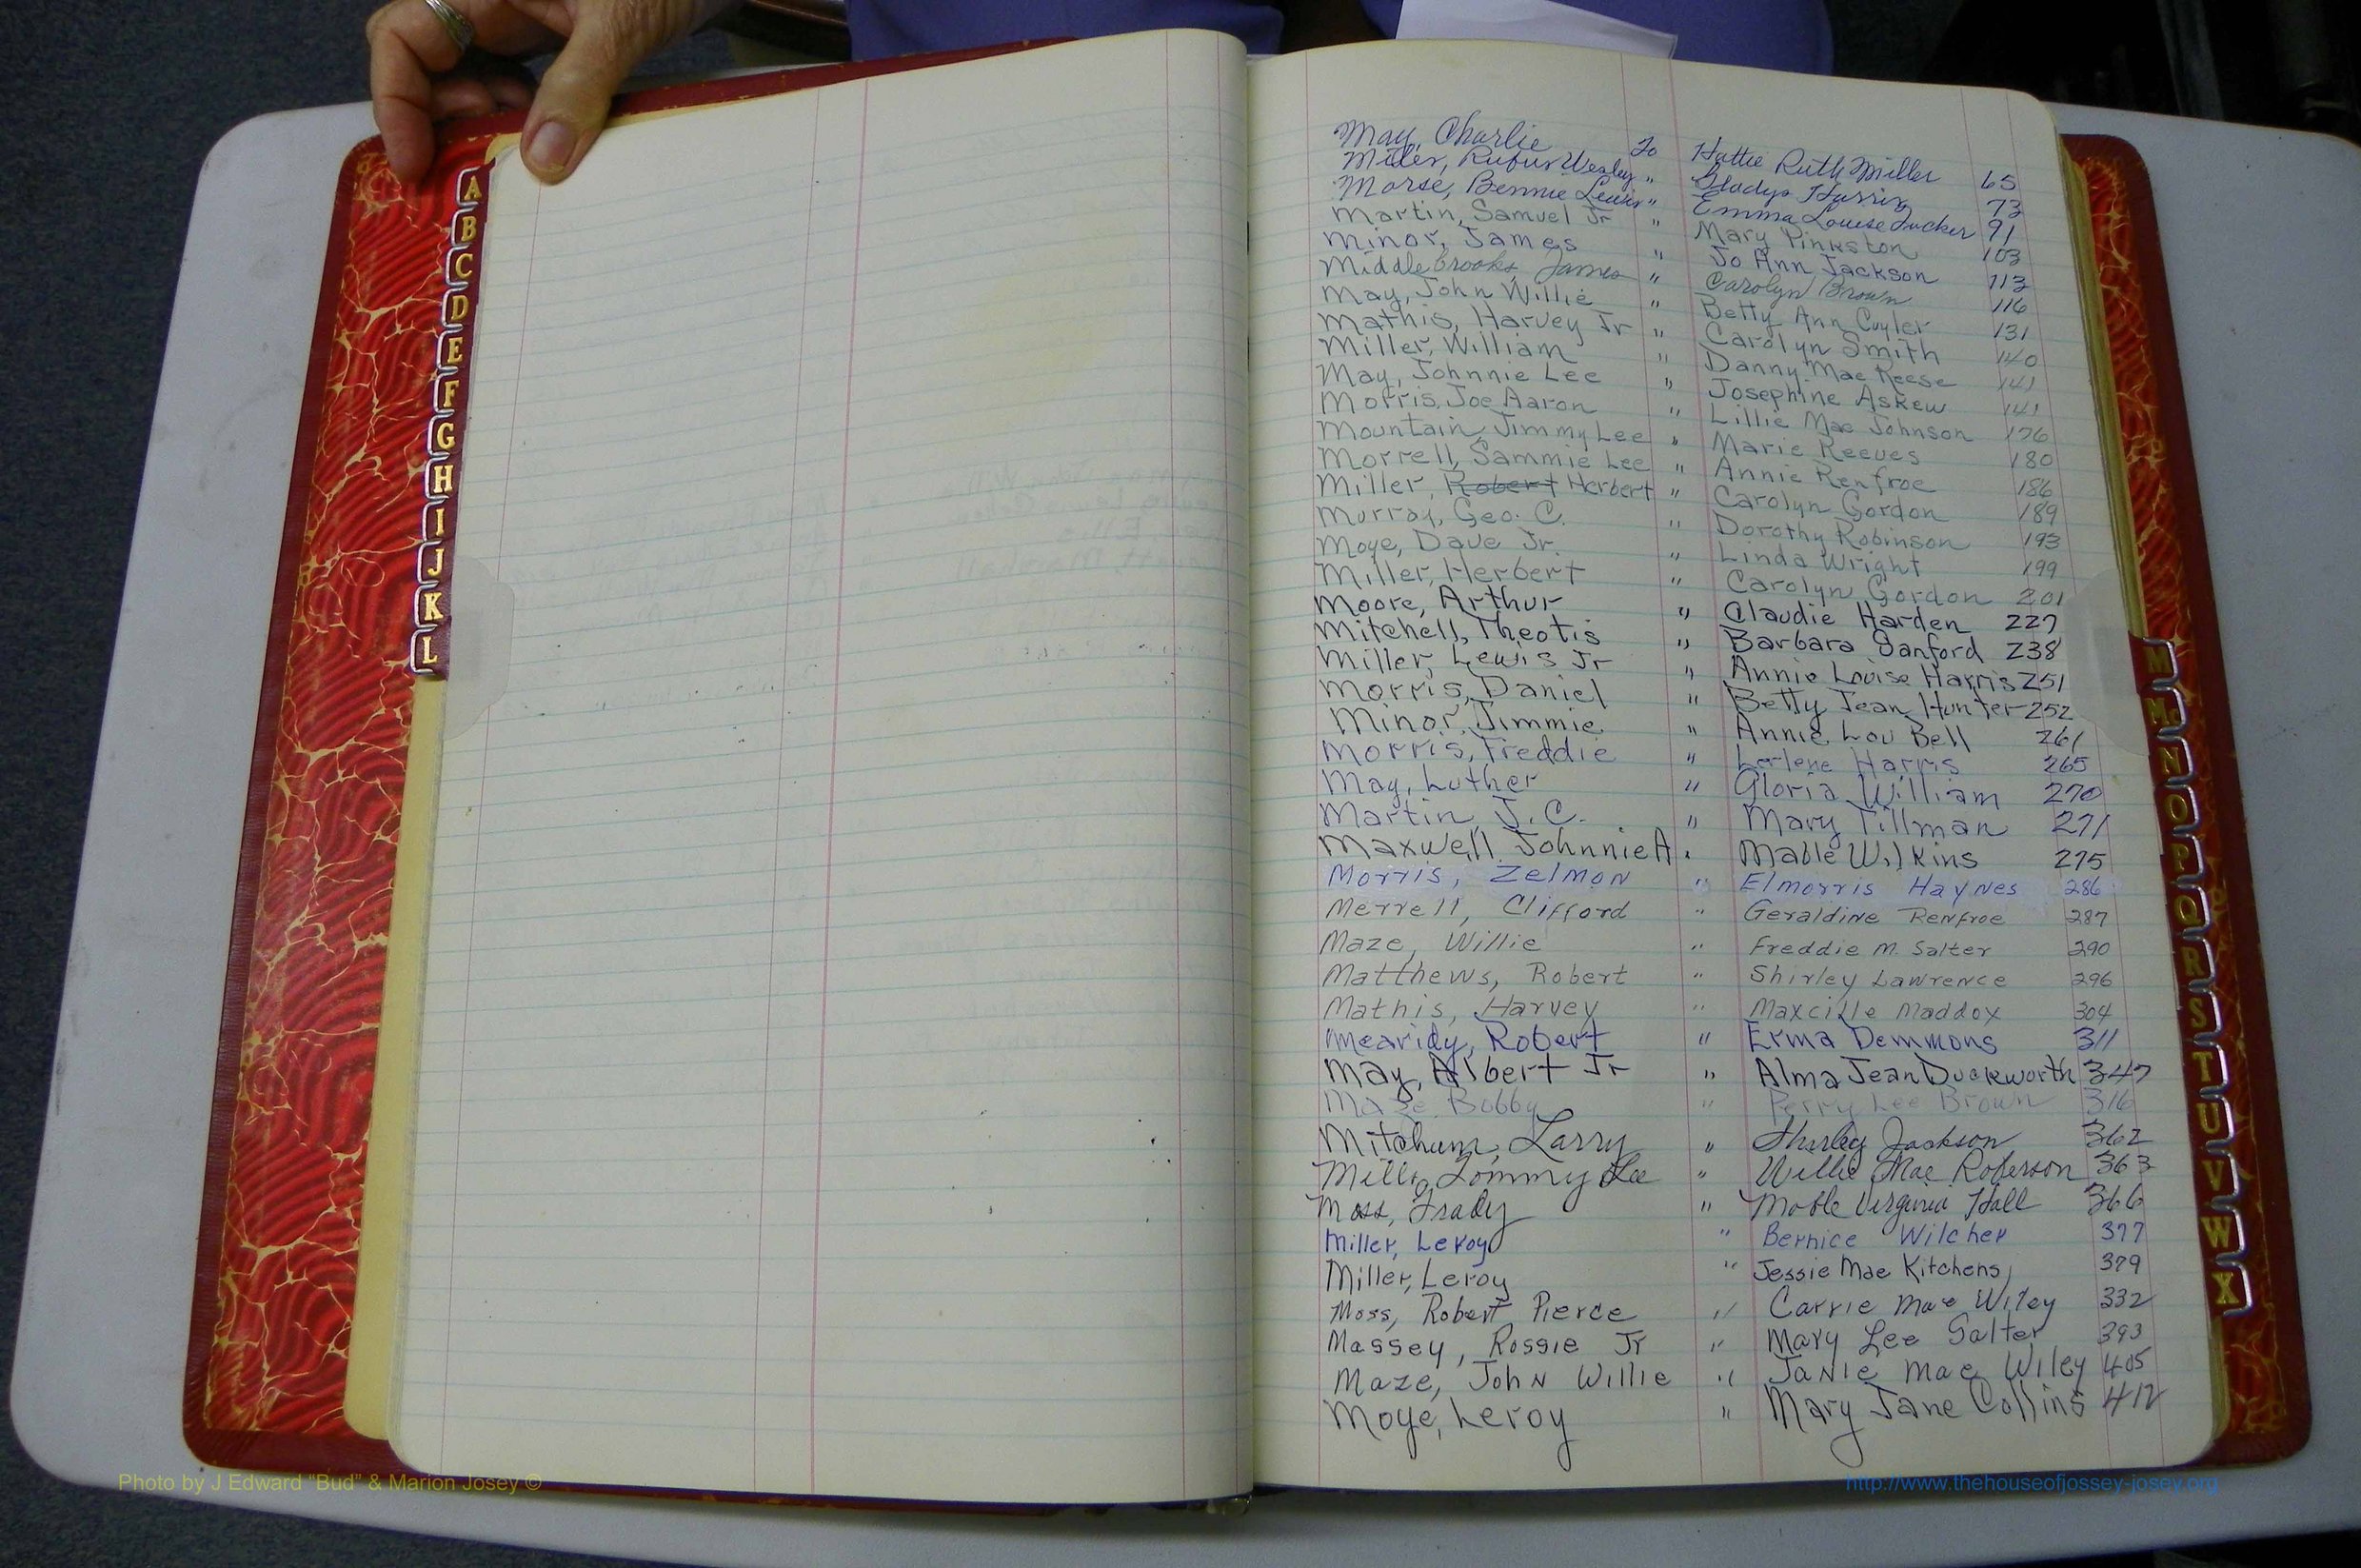 A
B
C
D
E
F
G
H
I
J
K
L
May, Charlie To Hattie Ruth Miller 65
Miller, Rufus Wesley " Gladys Harris 73
Morse, Bennie Lewis " Emma Louise Tucker 91
Martin, Samuel Jr " Mary Pinkston 103
Minor, James " Jo Ann Jackson 113
Middlebrooks, James " Carolyn Brown 116
May, John Willie " Betty Ann Cuyler 131
Mathis, Harvey Jr " Carolyn Smith 140
Miller, William " Danny Mae Reese 141
May, Johnnie Lee " Josephine Askew 141
Morris, Joe Aaron " Lillie Mae Johnson 176
Mountain, Jimmy Lee " Marie Reeves 180
Morrell, Sammie Lee " Annie Renfroe 186
Miller, Robert Herbert " Carolyn Gordon 189
Murray, Geo. C. " Dorothy Robinson 193
Moye, Dave Jr. " Linda Wright 199
Miller, Herbert " Carolyn Gordon 201
Moore, Arthur " Claudie Harden 227
Mitchell, Theotis " Barbara Sanford 238
Miller, Lewis Jr " Annie Louise Harris 251
Morris, Daniel " Betty Jean Hunter 252
Minor, Jimmie " Annie Lou Bell 261
Morris, Freddie " Lerlene Harris 265
May, Luther " Gloria William 270
Martin, J.C. " Mary Tillman 271
Maxwell, Johnnie A. " Mable Wilkins 275
Morris, Zelmon " Elmorris Haynes 286
Merrell, Clifford " Geraldine Renfroe 287
Maze, Willie " Freddie M. Salter 290
Matthews, Robert " Shirley Lawrence 296
Mathis, Harvey " Maxcille Maddox 304
Mearidy, Robert " Erma Demmons 311
May, Albert Jr " Alma Jean Duckworth 347
Maze, Bobby " Perry Lee Brown 316
Mitchum, Larry " Shirley Jackson 362
Mills, Tommy Lee " Willie Mae Roberson 363
Moss, Grady " Moble Virginia Hall 366
Miller, Leroy " Bernice Wilcher 377
Miller, Leroy " Jessie Mae Kitchens 379
Moss, Robert Pierce " Carrie Mae Wiley 332
Massey, Rossie Jr " Mary Lee Salter 393
Maze, John Willie " Janie Mae Wiley 405
Moye, Leroy " Mary Jane Collins 412
M
Mc
N
O
P
Q
R
S
T
U
V
W
X
Photo by J Edward “Bud” & Marion Josey ©
http://www.thehouseofjossey-josey.org